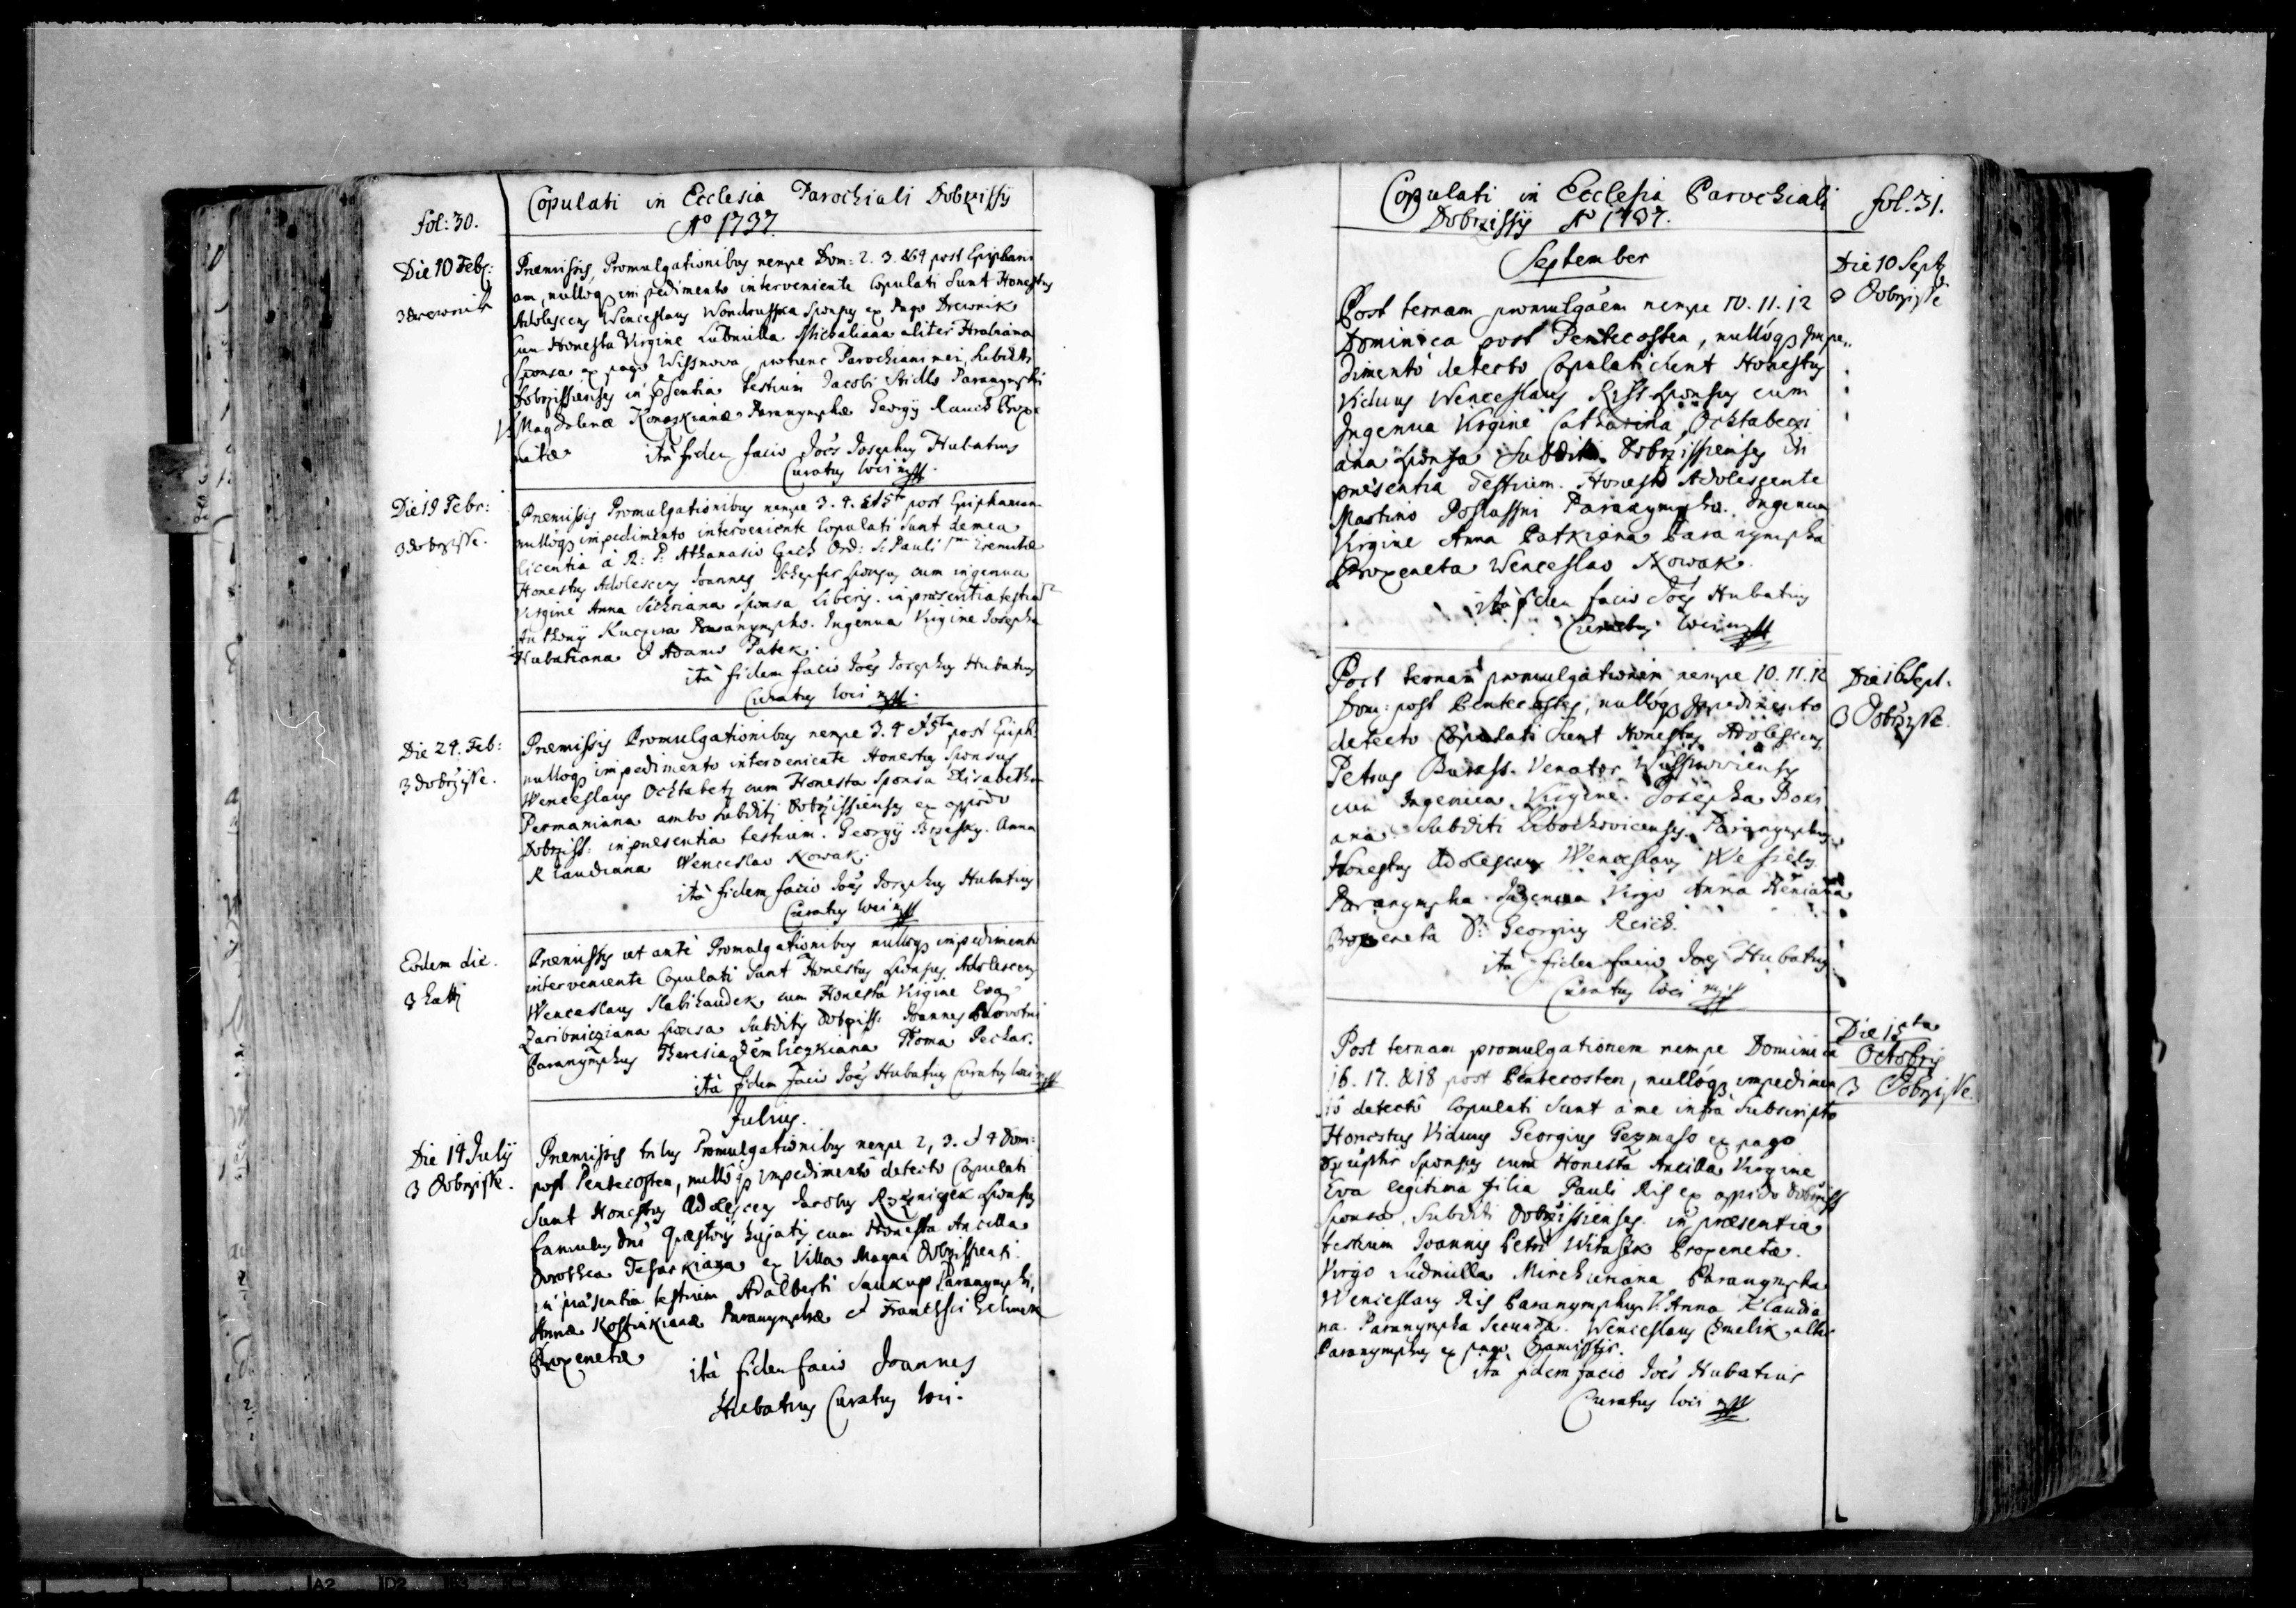 fol: 30.
Copulati in Ecclesia Parochiali Dobrzissÿ
Aº 1737.
Die 10 Feb:
3 Drewnik
Præmissis Promulgationibus nempe Dom: 2. 3. & 4 post Epiphani
am, nullóq impedimento interveniente Copulati Sunt Honestus
Adolescens Wenceslaus Wondrusska Sponsus ex Pago Drewnik
cum Honesta Virgine Ludmilla Michaliana aliter Hrabiana
Sponsa ex pago Wissnowa protunc Parochiani mei, Subditi
Dobrzissienses in psentia testium Jacobi Stidlo Paranymphi
V. Magdalenæ Konopkianæ Paranymphæ Georgÿ Rauch Prox
enetæ ità fidem facio Joês Josephus Hubatius
Curatus loci mpp.
Die 19 Febr:
3 Dobrzisse.
Præmissis Promulgationibus nempe 3. 4. et 5ta post Epiphaniam
nullóq impedimento interveniente Copulati Sunt de mea
licentia à R: P: Athanasio Ord: S: Pauli Imi Eremitæ
Honestus Adolescens Joannes Schepfer Sponsus cum ingenua
Virgine Anna Sponsa Liberis. in præsentia testium
Anthonÿ Kuczera Paranympho. Ingenua Virgine Josepha
Hubatiana et Adamo Patek.
ità fidem facio Joês Josephus Hubatius
Curatus loci mpp.
Die 24. Feb:
3 Dobrzisse.
Præmissis Promulgationibus nempe 3. 4 et 5ta post Epiph:
nullóq impedimento interveniente Honestus Sponsus
Wenceslaus Ochtabetz cum Honesta Sponsa Elisabetha
Permaniana ambo subditi Dobrzissienses ex oppido
Dobrziss: in præsentia testium. Georgÿ Brzesky. Anna
Klaudiana Wenceslao Nowak.
ità fidem facio Joês Josephus Hubatius
Curatus loci mpp
Eodem die.
Præmissis ut antè Promulgationibus nullóq impedimento
interveniente Copulati Sunt Honestus Sponsus Adolescens
Wenceslaus Slabihaudek cum Honesta Virgine Eva
Zaribnicziana Sponsa Subditis Dobrziss: Joannes
Paranymphus Theresia Zemliczkiana Thoma Pechar.
ità fidem facio Joês Hubatius Curatus loci mpp
Julius.
Die 14 Julÿ
3 Dobrzisse.
Præmissis tribus Promulgationibus nempe 2, 3. et 4 Dom:
post Pentecosten, nullôq impedimentô detecto Copulati
Sunt Honestus Adolescens Jacobus Sponsus
famulus Dni Quæstoris hujatis cum Honesta Ancilla
Dorothea Tesarkiana ex Villa Magna Dobrzissienti.
in præsentia testium Adalberti Saukup Paranymphi,
Annæ Kostinkianæ Paranymphæ et Francisci
Proxenetæ ità fidem facio Joannes
Hubatius Curatus loci.
Copulati in Ecclesia Parochiali
Dobrzissÿ Aº 1737.
fol. 31.
September
Die 10 Sept
3 Dobrzisse
Post ternam promulgâem nempe 10. 11. 12
Dominica post Pentecosten, nullóq Impe„
dimentô detecto Copulati sunt Honestus
Viduus Wenceslaus Riss Sponsus cum
Ingenua Virgine Catharina Ochtabeczi
ana Sponsa Subditi Dobrzissienses in
præsentia Testium. Honesto Adolescente
Martino Poslussni Paranympho. Ingenua
Virgine Anna Patkiana Paranympha
Proxeneta Wenceslao Nowak.
ità fidem facio Joês Hubatius
Curatus loci mpp
Die 16 Sept.
3 Dobrzisse.
Post ternam promulgationem nempe 10. 11. 12
Dom: post Pentecostes, nullóq Impedimento
detecto Copulati Sunt Honestus Adolescens
Petrus Burass. Venator
cum Ingenua Virgine. Josepha Boxi
ana Subditi Libochovicenses. Paranymphus
Honestus Adolescens Wenceslaus Wessely.
Paranympha Ingenua Virgo Anna Heniana
Proxeneta D: Georgius Reich.
ità fidem facio Joês Hubatius
Curatus loci mpp
Die 15ta
Octobris
3 Dobrzisse.
Post ternam promulgationem nempe Dominica
16. 17. & 18 post Pentecosten, nullóq impedimen
tô detectô Copulati Sunt à me infra Subscripto
Honestus Viduus Georgius ex pago
Sponsus cum Honesta Ancilla Virgine
Eva legitima filia Pauli Ris ex oppido Dobrziss
Sponsa, Subditi Dobrzissienses. in præsentia
testium Joannis Petri Witasek Proxenetæ.
Virgo Ludmilla Mirchiana Paranympha
Wenceslaus Ris Paranymphus V. Anna Klaudia
na. Paranympha Secunda. Wenceslaus alter
Paranymphus ex pago
ità fidem facio Joês Hubatius
Curatus loci mpp